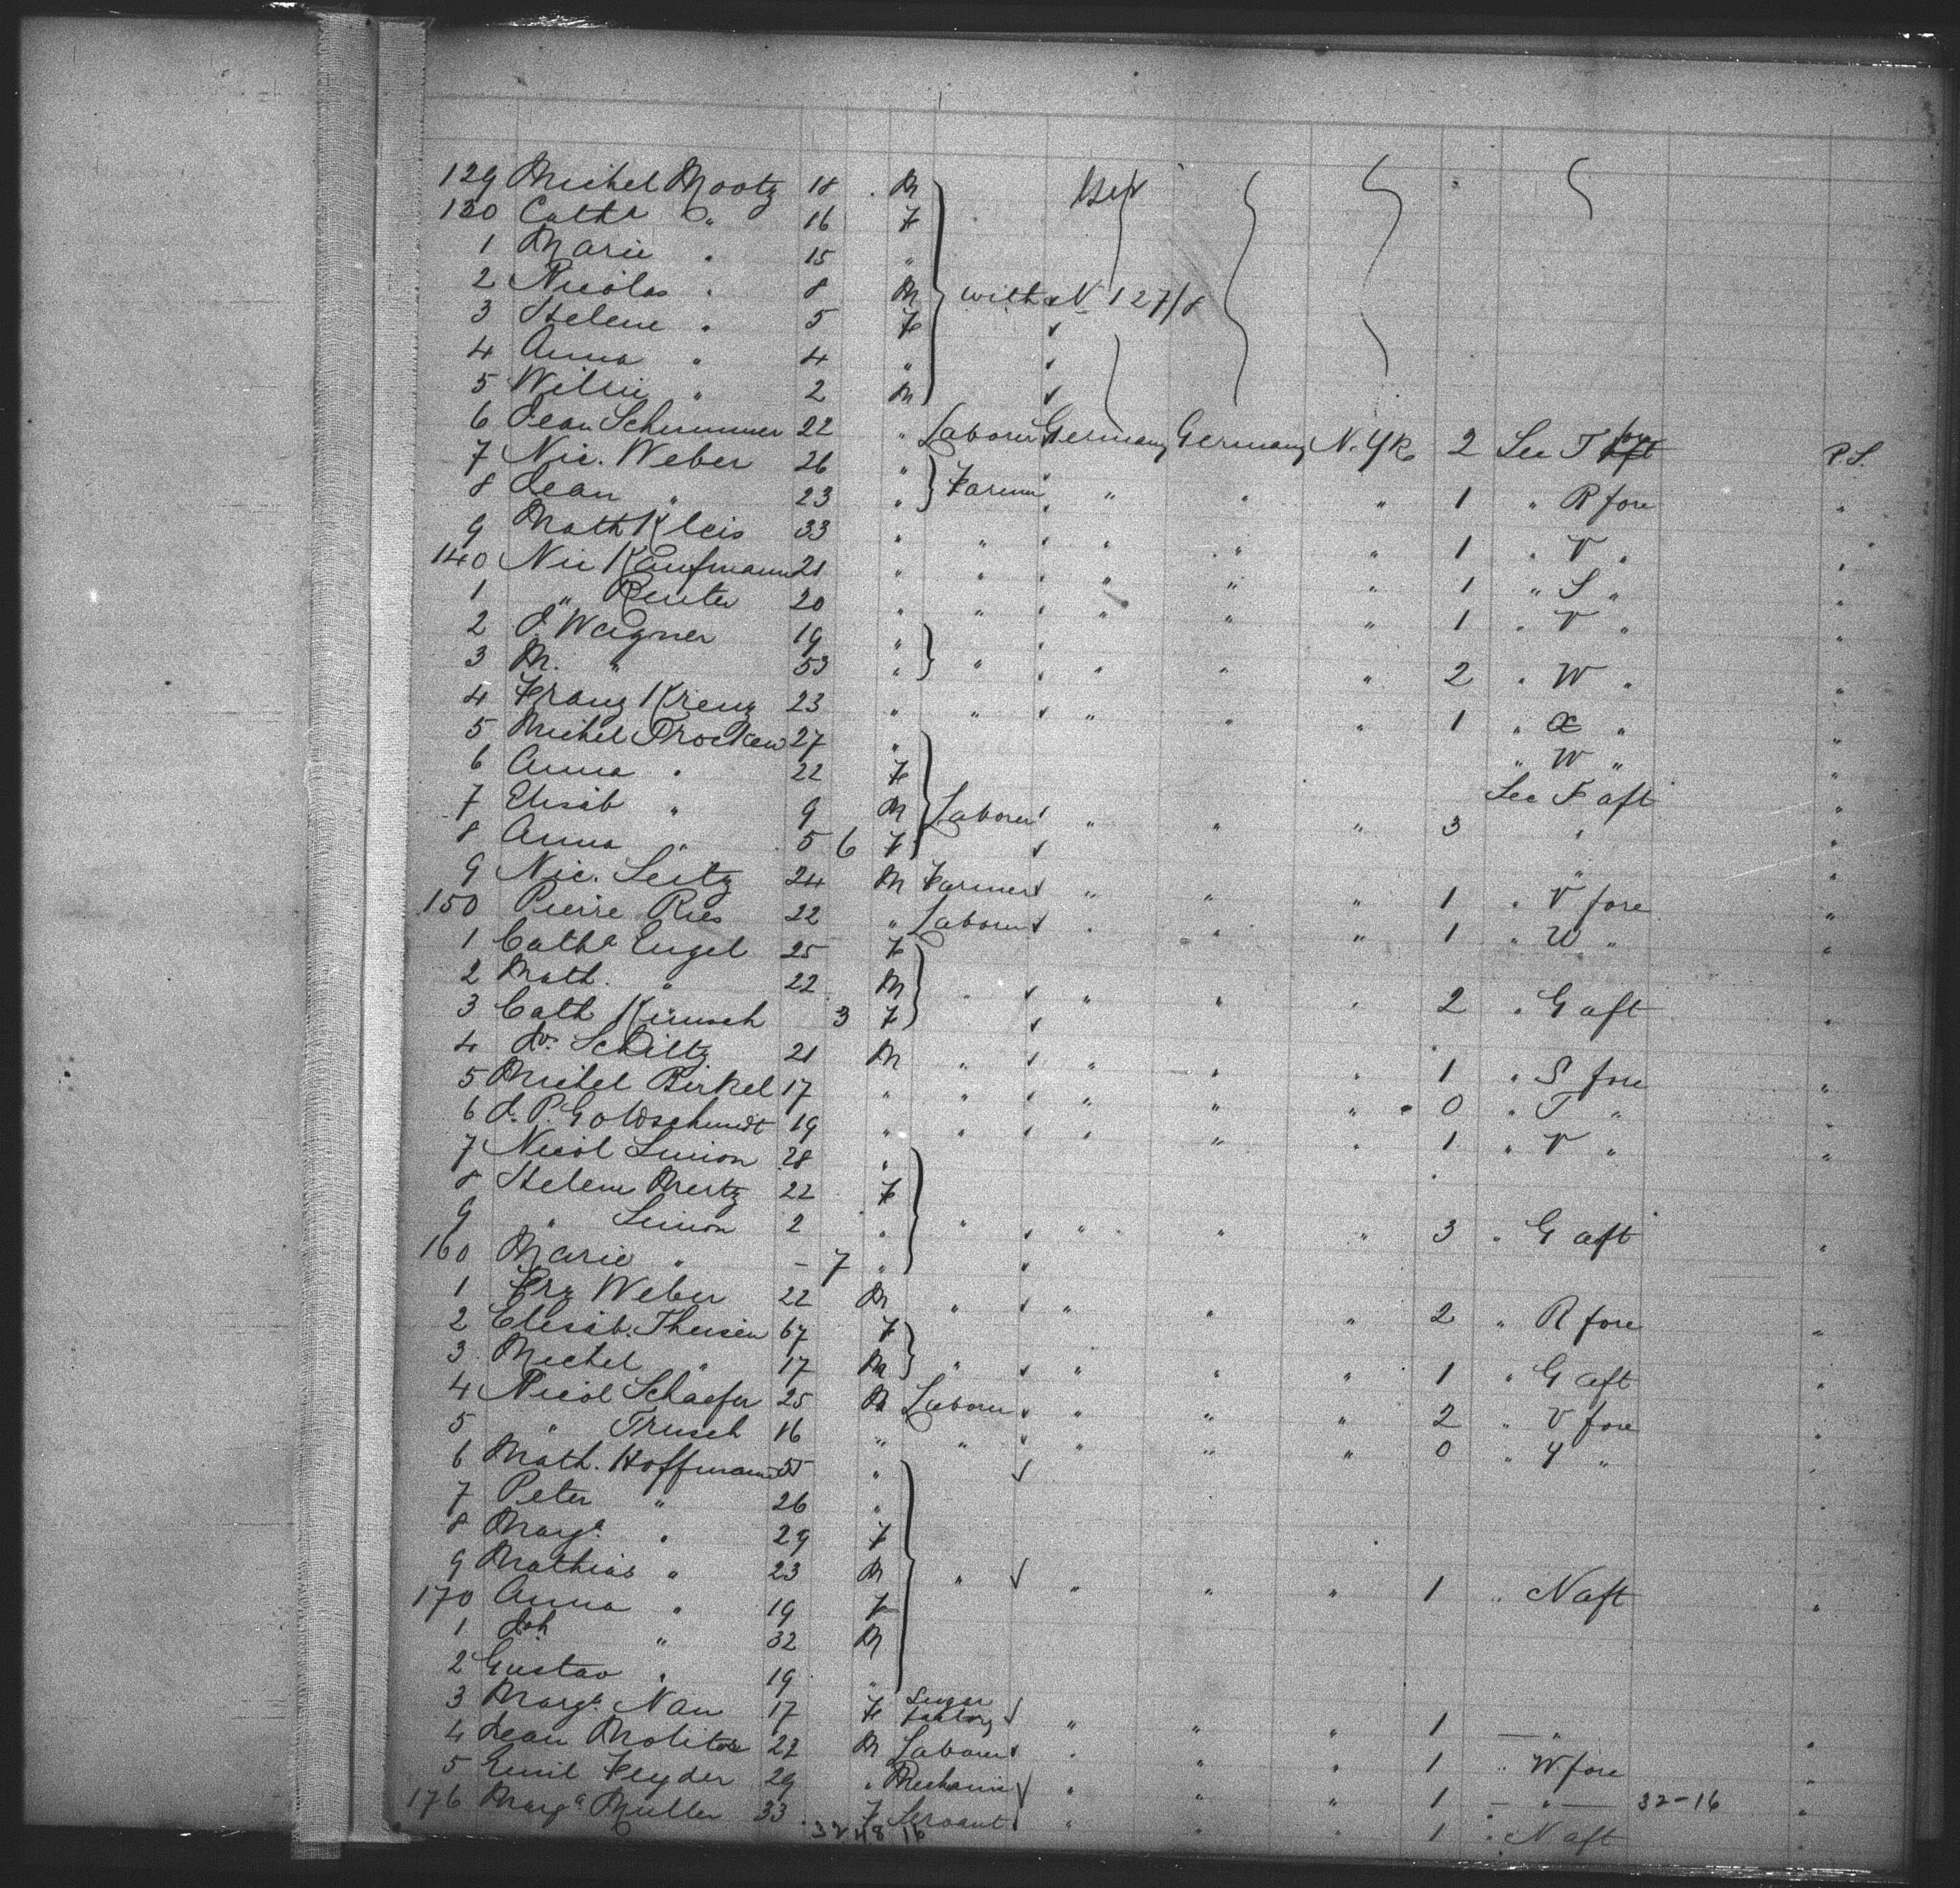 129 Michel Mootz 18 M
130 Cath.a " 16 F
1 Marie " 15 "
2 Nicolas " 8 M with N 127/8
3 Helene " 5 F
4 Anna " 4 "
5 Willie " 2 M
6 Jean Schummer 22 " Laborer Germany Germany N. Yk 2 Sec T fore P.S.
7 Nic. Weber 26 " Farmer
8 Jean " 23 " " " " 1 " R fore "
9 Math Kleis 33 " " " " " 1 " V " "
140 Nic Kaufmann 21 " " " " " 1 " S " "
1 " Reuter 20 " " " " " 1 " V " "
2 J. Wagner 19 "
3 M. " 53 " " " " " 2 " W " "
4 Franz Krenz 23 " " " " " 1 " X " "
5 Michel Trocken 27 " " W " "
6 Anna " 22 F Sec F aft "
7 Elisab " 9 M Laborer " " " 3 " "
8 Anna " 5 6 F " "
9 Nic. Seitz 24 M Farmer " " " 1 " V fore "
150 Pierre Ries 22 " Laborer " " " 1 " W " "
1 Cath.a Engel 25 F
2 Math. " 22 M " " " " 2 " G aft "
3 Cath Kirusch 3 F
4 Jos Schiltz 21 M " " " " 1 " S fore "
5 Michel Birkel 17 " " " " " 0 " T " "
6 J. P. Goldschmidt 19 " " " " " 1 " V " "
7 Nicol Simon 28 "
8 Helene Mertz 22 F
9 " Simon 2 " " " " " 3 " G aft "
160 Marie " - 7 "
1 Frz Weber 22 M " " " " 2 " R fore "
2 Elisab. Theisen 67 F
3 Michel " 17 M " " " " 1 " G aft "
4 Nicol Schaefer 25 M Laborer " " " 2 " V fore "
5 " Trusch 16 " " " " " 0 " Y " "
6 Math. Hoffmann 55 "
7 Peter " 26 "
8 Marg.a " 29 F
9 Mathias " 23 M " " " " 1 " N aft "
170 Anna " 19 F
1 Joh " 32 M
2 Gustav " 19 "
3 Marg.a Nau 17 F Sugar factory " " " 1 — " "
4 Jean Molitor 22 M Laborer " " " 1 " W fore "
5 Emil Feyder 29 " Mechanic " " " 1 — " — 32-16 "
176 Marg.a Muller 33 F Servant " " " 1 " N aft "
32 48 16